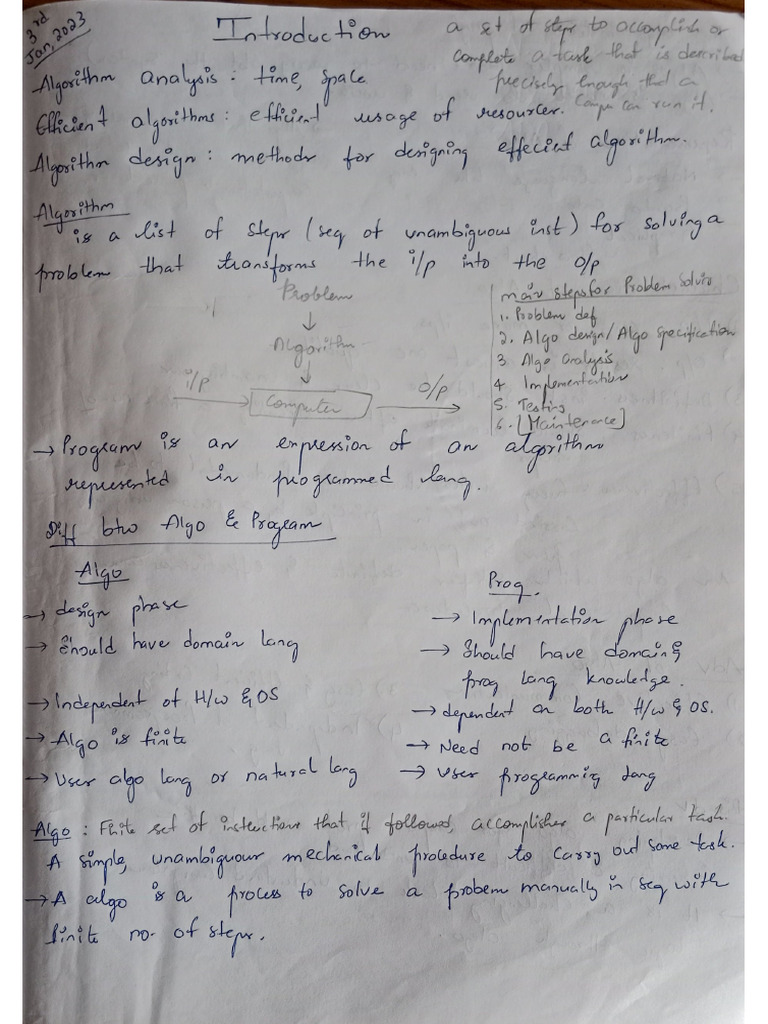 3rd
Jan, 2023
Introduction
a set of steps to accomplish or
complete a task that is described
precisely enough that a
Compu can run it.
Algorithm analysis : time, space
Efficient algorithms : efficient usage of resources.
Algorithm design : methods for designing effeciet algorithm.
Algorithm
is a list of steps (seq of unambiguous inst) for solving a
problem that transforms the i/p into the o/p
Problem
↓
Algorithm
↓
i/p → Computer → O/p
main steps for Problem Solvin
1. Problem def
2. Algo design/Algo specification
3 Algo analysis
4 Implementation
5. Testing
6. [Maintenance]
→ Program is an expression of an algorithm
represented in programmed lang.
Diff btw Algo & Program
Algo
→ design phase
→ Should have domain lang
→ Independent of H/w & OS
→ Algo is finite
→ Uses algo lang or natural lang
Prog.
→ Implementation phase
→ Should have domain &
prog lang knowledge.
→ dependent on both H/w & OS.
→ Need not be a finite
→ Uses programming lang
Algo : Finite set of instructions that if followed, accomplishes a particular task.
A simple, unambiguous mechanical procedure to carry out some task.
→ A algo is a process to solve a probem manually in seq with
finite no. of steps.